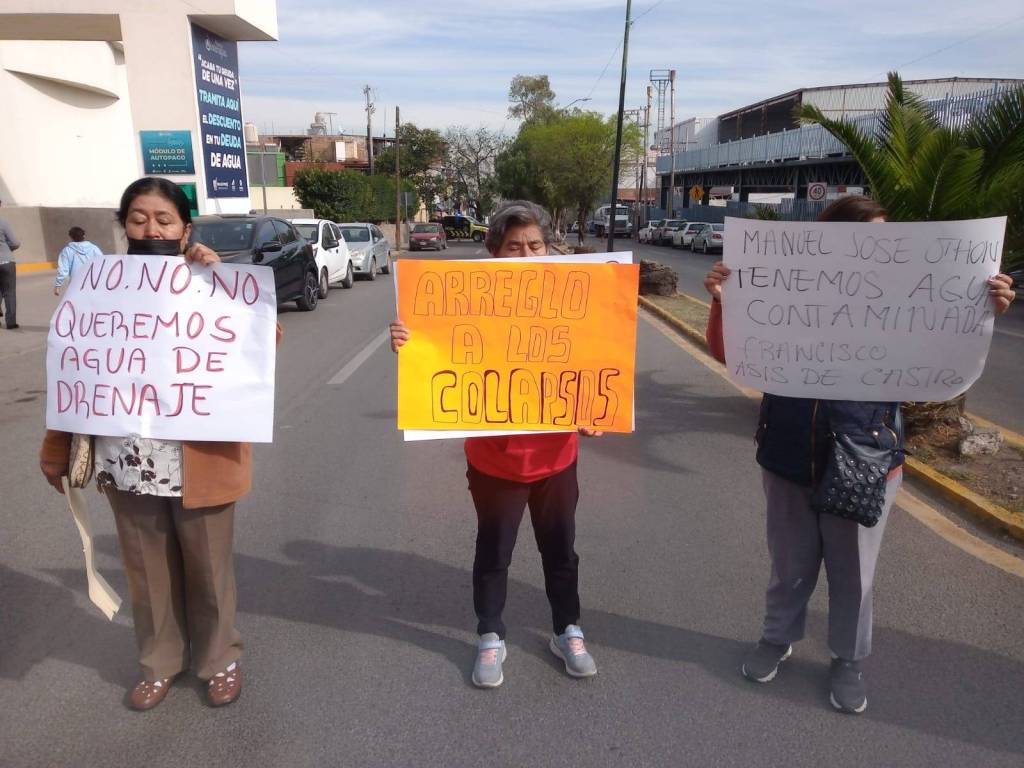 "ACABA TU DEUDA
DE UNA VEZ"
TRAMITA AQUÍ
EL DESCUENTO
EN TU DEUDA
DE AGUA
MÓDULO DE
AUTOPAGO
NO.NO.NO
QUEREMOS
AGUA DE
DRENAJE
ARREGLO
A LOS
COLAPSOS
MANUEL JOSE JTHON
TENEMOS AGUA
CONTAMINADA
FRANCISCO
ASIS DE CASTRO
40